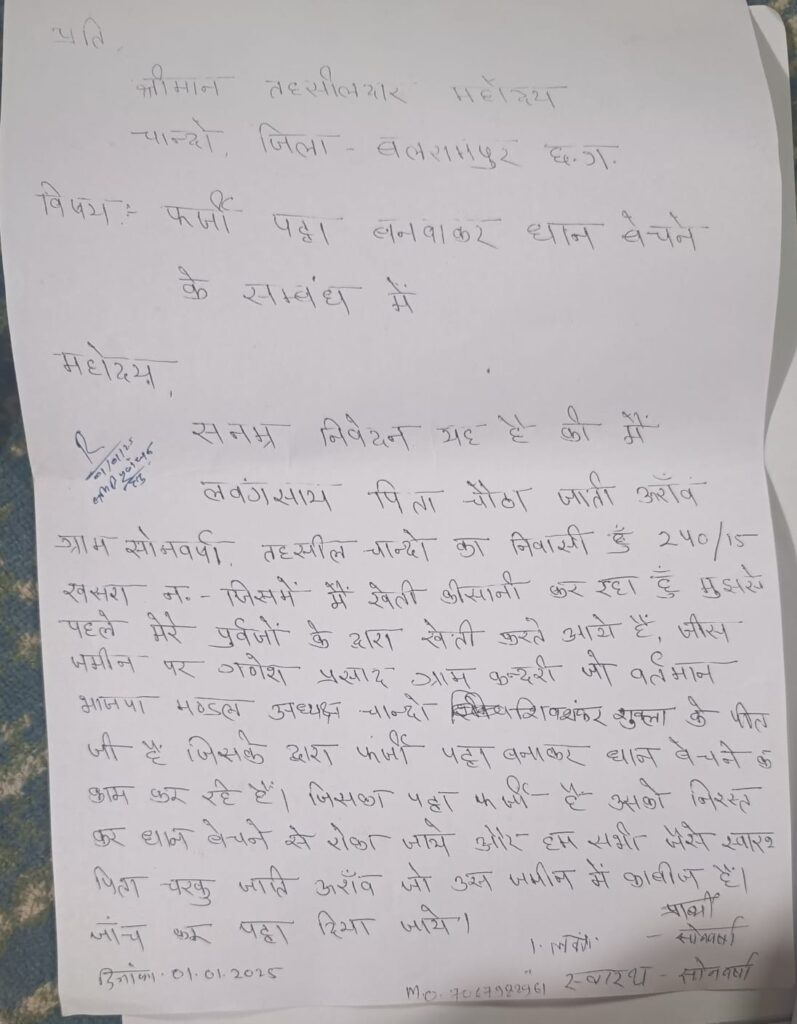 प्रति,
श्रीमान तहसीलदार महोदय
चान्दो, जिला - बलरामपुर छ.ग.
विषय:- फर्जी पट्टा बनवाकर धान बेचने
के सम्बंध में
महोदय,
सनम्र निवेदन यह है की मैं
लवंगसाय पिता चौठा जाती उराँव
ग्राम सोनवर्षा, तहसील चान्दो का निवासी हुँ 240/15
खसरा न.- जिसमें मैं खेती कीसानी कर रहा हुँ मुझसे
पहले मेरे पुर्वजों के द्वारा खेती करते आये हैं, जीस
जमीन पर गणेश प्रसाद ग्राम कन्दरी जो वर्तमान
भाजपा मण्डल अध्यक्ष चान्दो शिवशंकर शुक्ला के पीत
जी हैं जिसके द्वारा फर्जी पट्टा बनाकर धान बेचने क
काम कर रहे हैं। जिसका पट्टा फर्जी है उसको निरस्त
कर धान बेचने से रोका जाये और हम सभी जैसे स्वारथ
पिता चरकु जाति उराँव जो उस जमीन में काबीज हैं।
जांच कर पट्टा दिया जाये।
प्रार्थी
1. लवंग - सोनवर्षा
दिनांक. 01.01.2025
स्वारथ - सोनवर्षा
MO. 7067982961
01/01/25